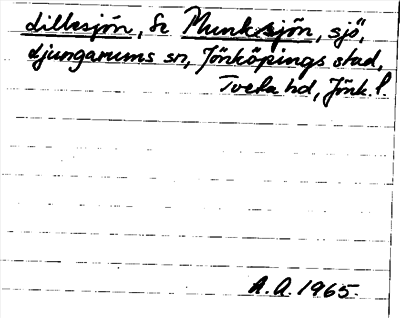 Lillsjön, Se Munksjön, sjö,
Ljungarums sn, Jönköpings stad,
Tveta hd, Jönk. l.
A.A. 1965.